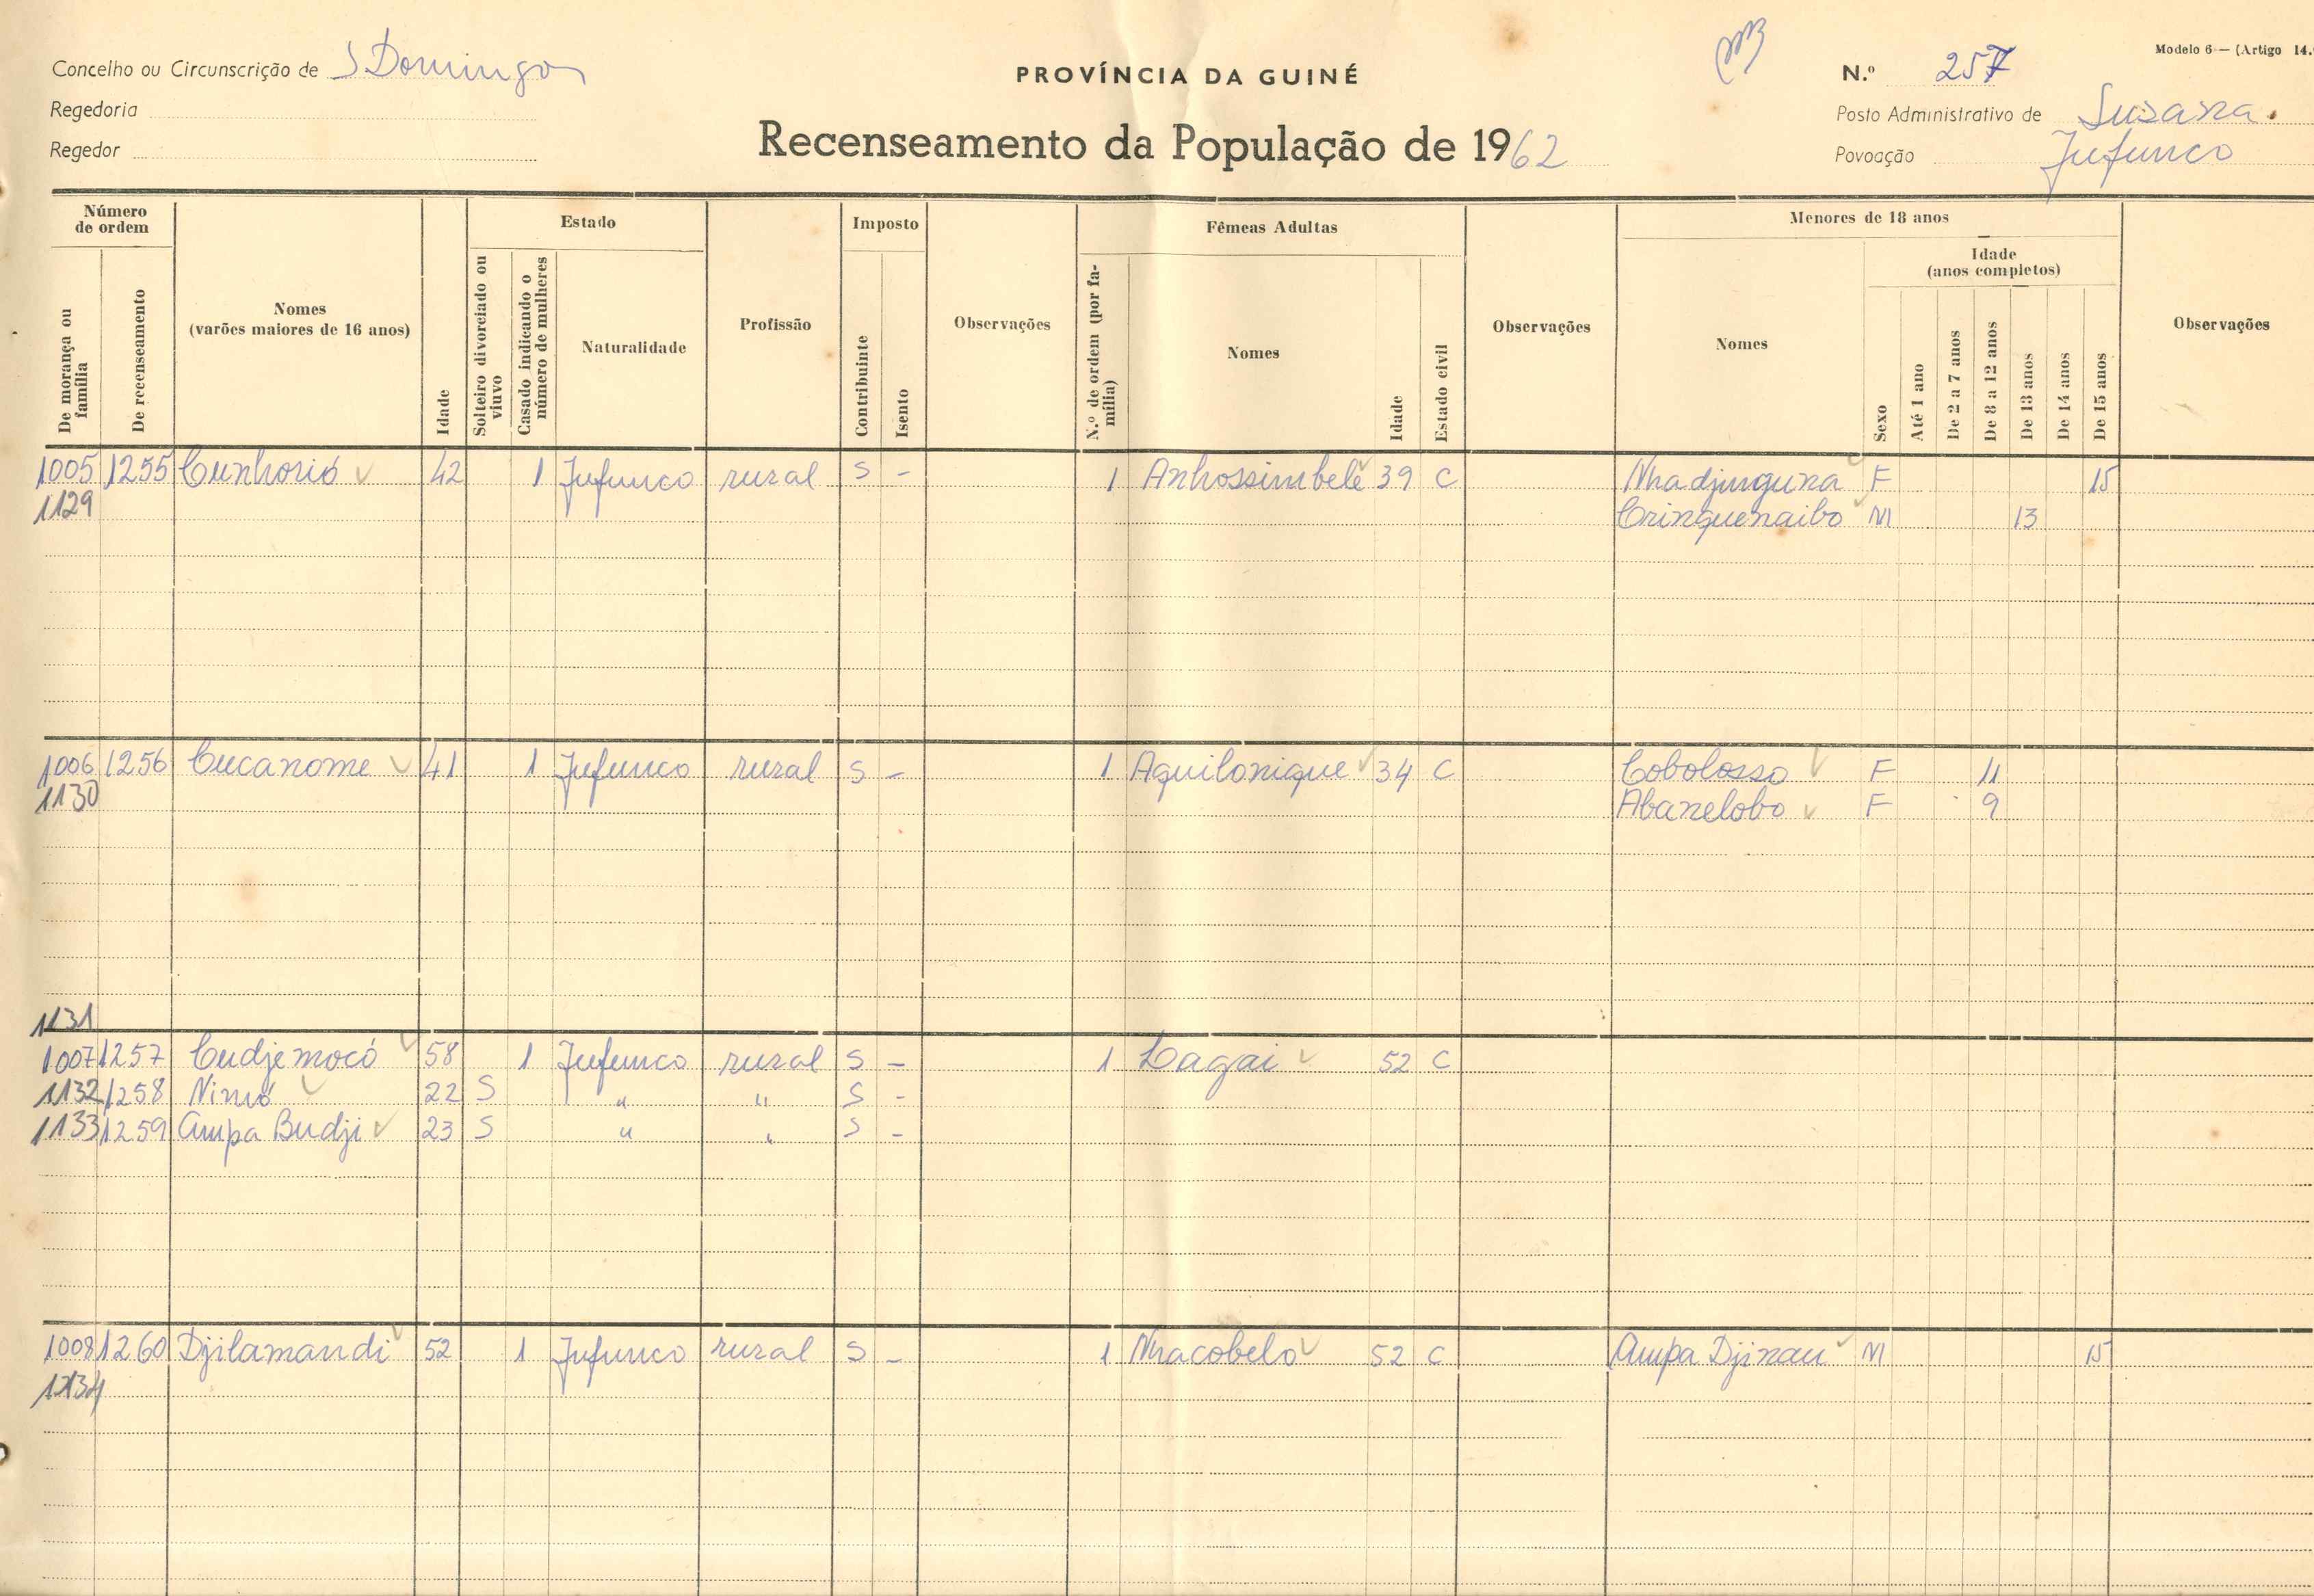 Modelo 6 — (Artigo 14.
Concelho ou Circunscrição de S Domingos
PROVÍNCIA DA GUINÉ
N.º 257
Regedoria
Posto Administrativo de Suzana
Regedor
Recenseamento da População de 1962
Povoação Jufunco
Número de ordem
Estado
Imposto
Fêmeas Adultas
Menores de 18 anos
Idade (anos completos)
De morança ou família
De recenseamento
Nomes (varões maiores de 16 anos)
Idade
Solteiro divorciado ou viuvo
Casado indicando o número de mulheres
Naturalidade
Profissão
Contribuinte
Isento
Observações
N.º de ordem (por família)
Nomes
Idade
Estado civil
Observações
Nomes
Sexo
Até 1 ano
De 2 a 7 anos
De 8 a 12 anos
De 13 anos
De 14 anos
De 15 anos
Observações
1005 1255 Cunhorió 42 1 Jufunco rural S - 1 Anhossimbelé 39 C Nhadjinguna F 15
1129 Crinquenaibo M 13
1006 1256 Cucanome 41 1 Jufunco rural S - 1 Aquilonique 34 C Cobolosso F 11
1130 Abanelobo F 9
1131
1007 1257 Cudjemocó 58 1 Jufunco rural S - 1 Lagai 52 C
1132 1258 22 S " " S -
1133 1259 Ampa Budji 23 S " " S -
1008 1260 Djilamandi 52 1 Jufunco rural S - 1 Nhacobelo 52 C Ampa Djinau M 15
1134